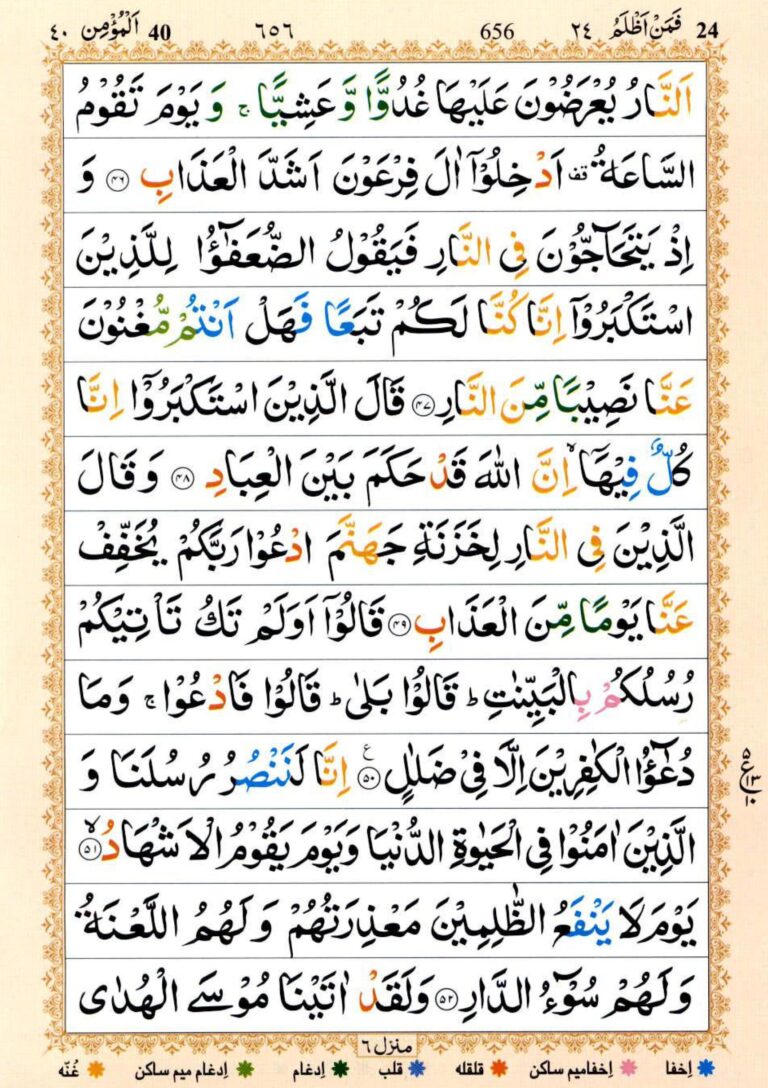 24 فَمَنْ اَظْلَمُ ٢٤ 656 ٦٥٦ 40 اَلْمُؤْمِن ٤٠
اَلنَّارُ يُعْرَضُوْنَ عَلَيْهَا غُدُوًّا وَّ عَشِيًّا ۚ وَ يَوْمَ تَقُوْمُ
السَّاعَةُ ۟ قف اَدْخِلُوْۤا اٰلَ فِرْعَوْنَ اَشَدَّ الْعَذَابِ ﴿۴۶﴾ وَ
اِذْ يَتَحَآجُّوْنَ فِي النَّارِ فَيَقُوْلُ الضُّعَفٰٓؤُا لِلَّذِيْنَ
اسْتَكْبَرُوْۤا اِنَّا كُنَّا لَكُمْ تَبَعًا فَهَلْ اَنْتُمْ مُّغْنُوْنَ
عَنَّا نَصِيْبًا مِّنَ النَّارِ ﴿۴۷﴾ قَالَ الَّذِيْنَ اسْتَكْبَرُوْۤا اِنَّا
كُلٌّ فِيْهَاۤ ۙ اِنَّ اللّٰهَ قَدْ حَكَمَ بَيْنَ الْعِبَادِ ﴿۴۸﴾ وَ قَالَ
الَّذِيْنَ فِي النَّارِ لِخَزَنَةِ جَهَنَّمَ ادْعُوْا رَبَّكُمْ يُخَفِّفْ
عَنَّا يَوْمًا مِّنَ الْعَذَابِ ﴿۴۹﴾ قَالُوْۤا اَوَلَمْ تَكُ تَاْتِيْكُمْ
رُسُلُكُمْ بِالْبَيِّنٰتِ ؕ قَالُوْا بَلٰى ؕ قَالُوْا فَادْعُوْا ۚ وَمَا
دُعٰٓؤُا الْكٰفِرِيْنَ اِلَّا فِيْ ضَلٰلٍ ﴿۵۰﴾ ع اِنَّا لَنَنْصُرُ رُسُلَنَا وَ
۵ ع ۱۳ ۱۰
الَّذِيْنَ اٰمَنُوْا فِي الْحَيٰوةِ الدُّنْيَا وَيَوْمَ يَقُوْمُ الْاَشْهَادُ ﴿۵۱﴾ ۙ
يَوْمَ لَا يَنْفَعُ الظّٰلِمِيْنَ مَعْذِرَتُهُمْ وَ لَهُمُ اللَّعْنَةُ
وَ لَهُمْ سُوْٓءُ الدَّارِ ﴿۵۲﴾ وَلَقَدْ اٰتَيْنَا مُوْسَى الْهُدٰى
منزل ٦
اِخفا اِخفامیم ساکن قلقله قلب اِدغام اِدغام میم ساکن غُنّه